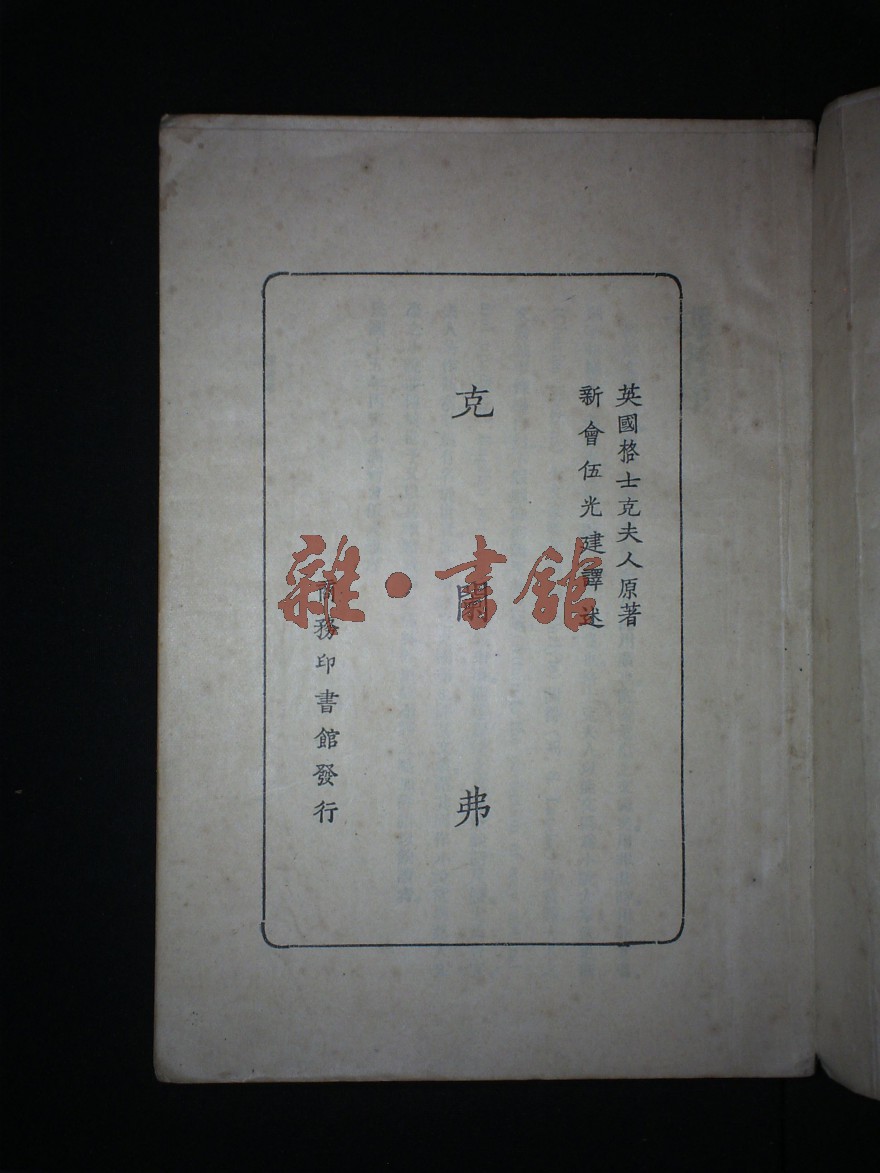 英國格士克夫人原著
新會伍光建譯述
克闌弗
商務印書館發行
雜·書館